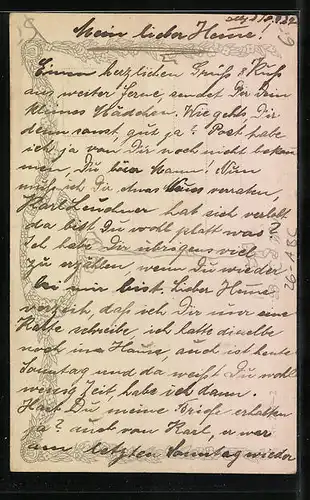 Mein lieber Heine!
Einen herzlichen Gruß & Kuß
aus weiter Ferne, sendet Dir Dein
kleines Mädchen. Wie gehts Dir
denn sonst, gut ja? Post habe
ich ja von Dir noch nicht bekom
men, Du böser Mann! Nun
muß ich Dir etwas Neues verraten,
Karl hat sich verlobt
da bist Du wohl platt was?
ich habe Dir übrigens viel
zu erzählen, wenn Du wieder
bei mir bist. Lieber Heine
verzeih, daß ich Dir nur eine
Karte schreibe ich hatte dieselbe
noch im Hause, auch ist heute
Sonntag und da weißt Du wohl
wenig Zeit habe ich dann.
Hast Du meine Briefe erhalten
ja? auch von Karl, er war
am letzten Sonntag wieder
26-ABC